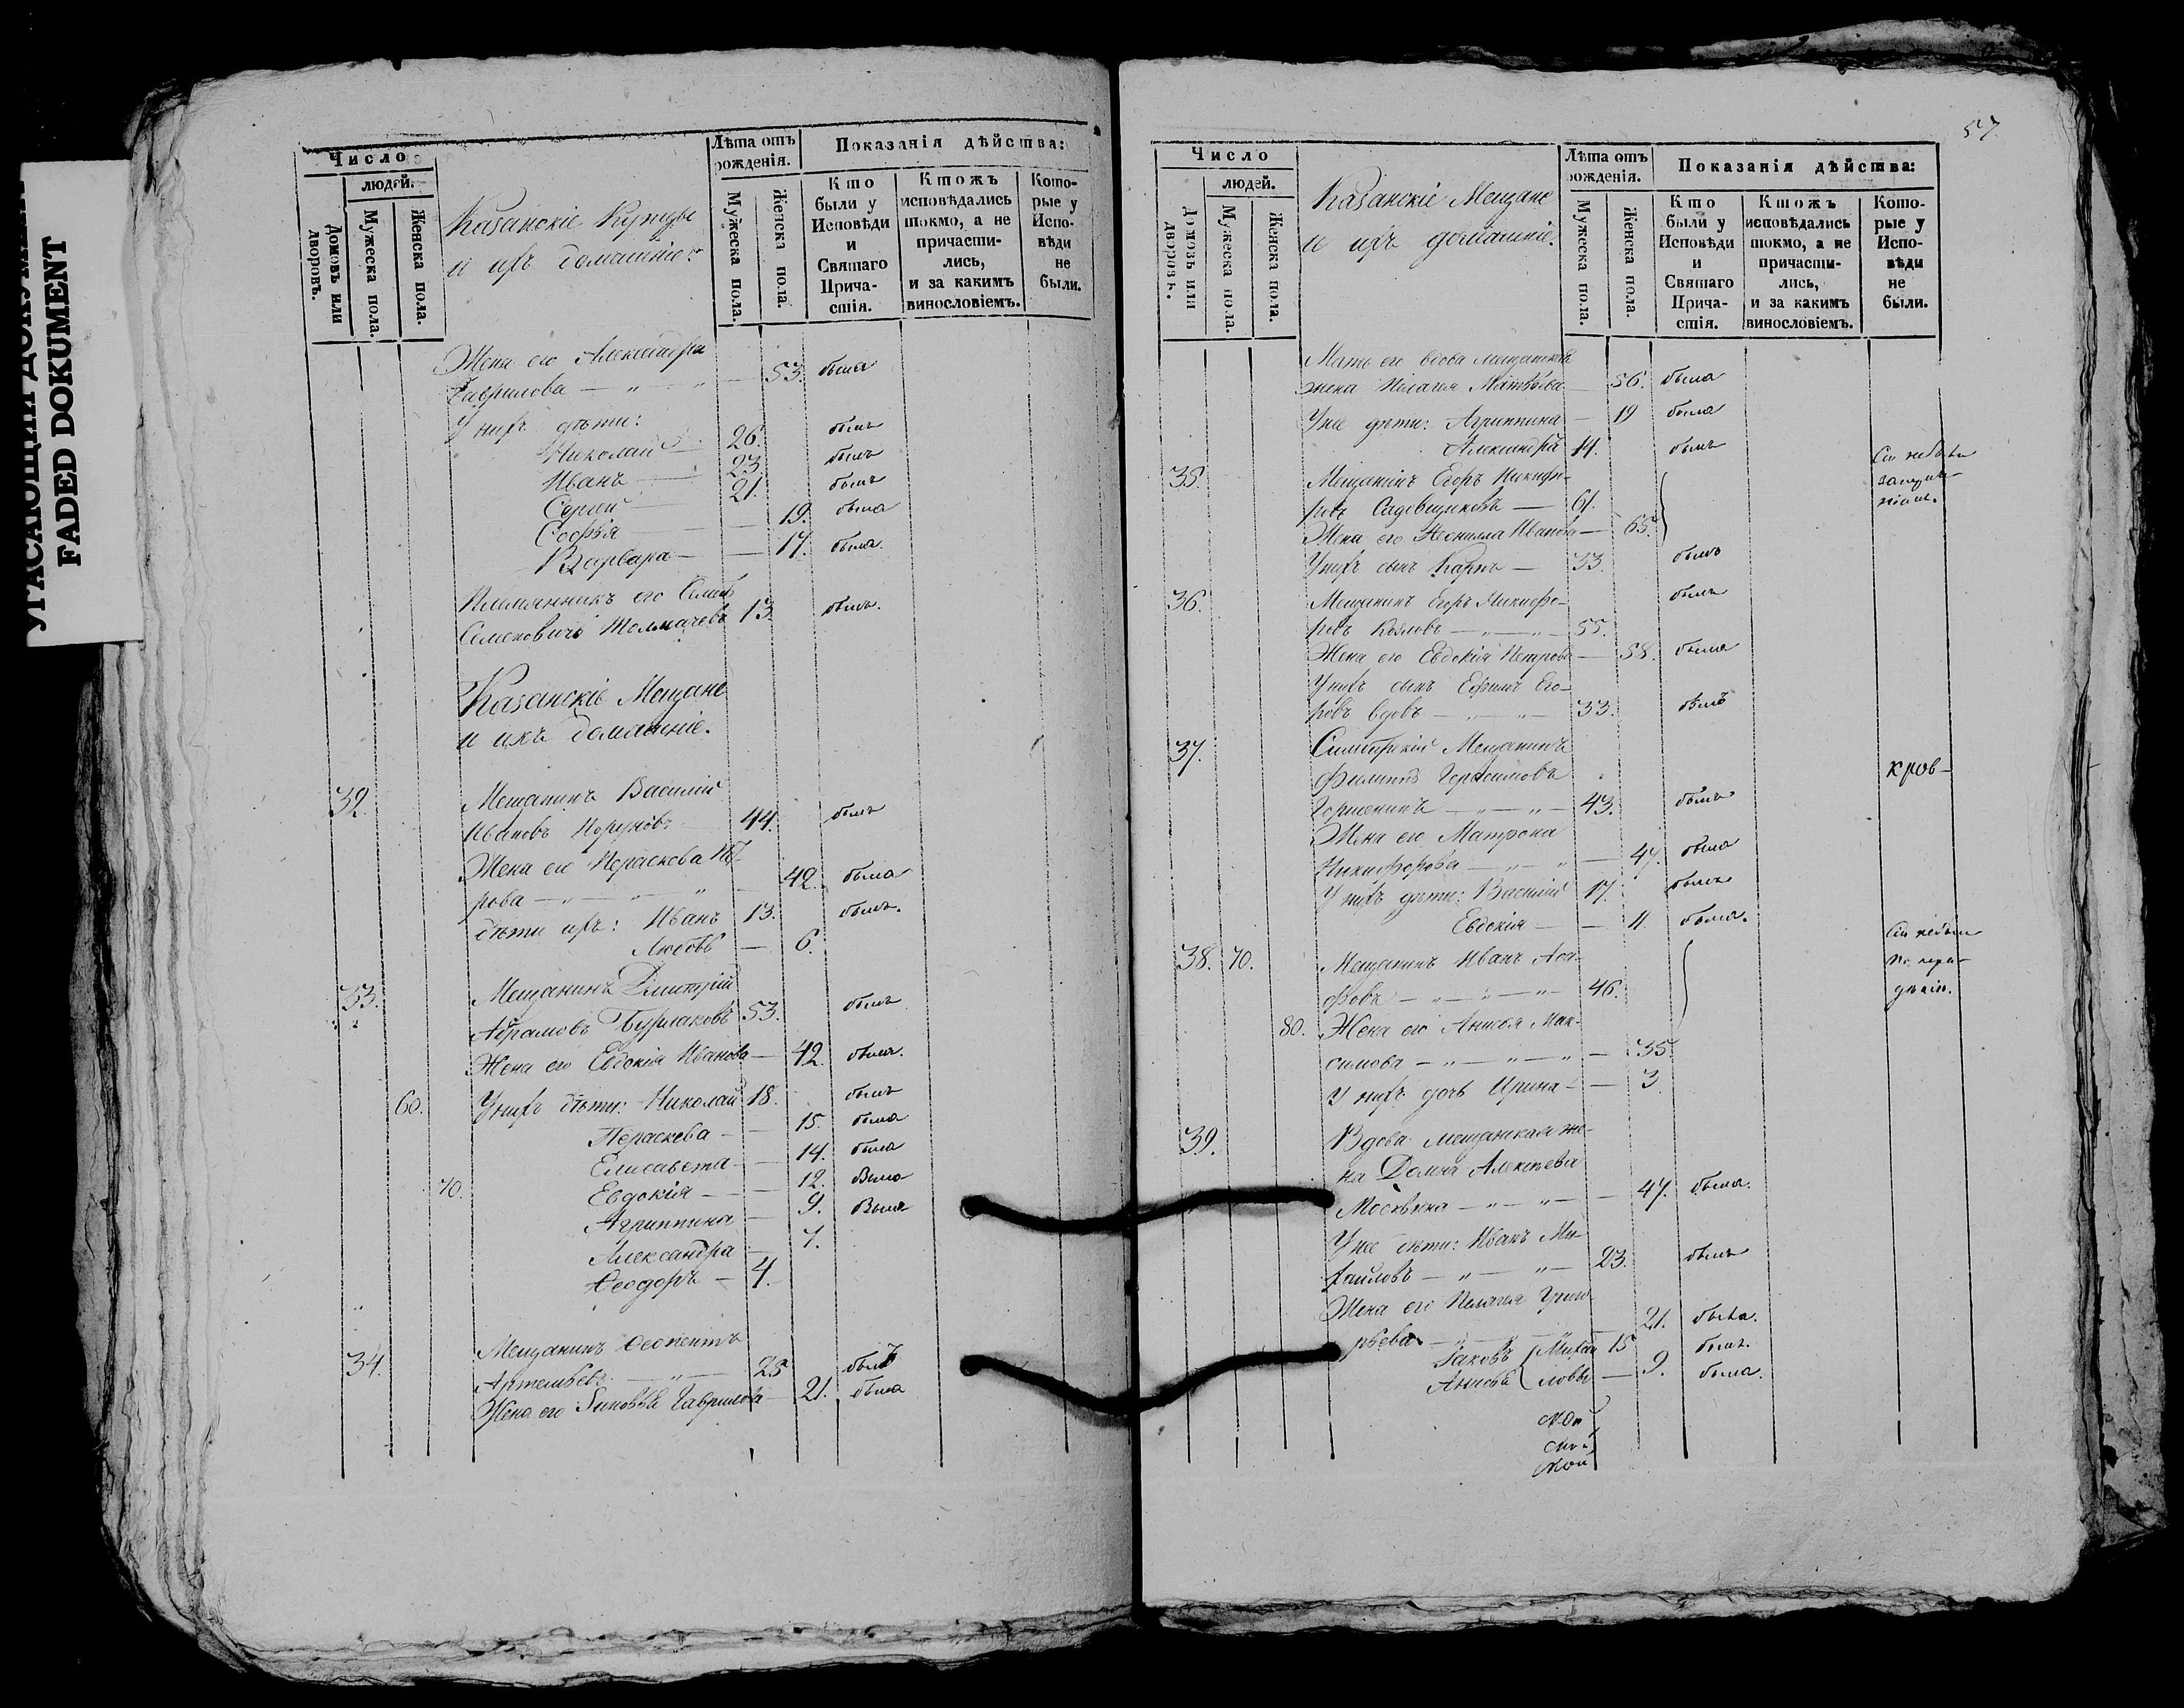 УГАСАЮЩИЙ ДОКУМЕНТ
FADED DOKUMENT
Число
людей.
Домовъ или дворовъ.
Мужеска пола.
Женска пола.
Казанскіе Купцы
и ихъ домашніе:
Лѣта отъ рожденія.
Мужеска пола.
Женска пола.
Показанія дѣйства:
Кто были у Исповѣди и Святаго Причастія.
Ктожъ исповѣдались токмо, а не причастились, и за какимъ винословіемъ.
Которые у Исповѣди не были.
Жена его Александра
Гаврилова — 53. была
У нихъ дѣти:
Николай 26. былъ
Иванъ — 23 былъ
Сергей — 21. былъ
Софья — 19. была
Варвара — 17. была.
Племянникъ его
Семеновичь Толмачевъ 13. былъ.
Казанскіе Мещане
и ихъ домашніе.
32. Мещанинъ Василій
Ивановъ 44. былъ
Жена его Параскева Пет-
рова — 42. была
дѣти ихъ: Иванъ 13. былъ.
Любовь — 6.
33. Мещанинъ Димитрій
Абрамовъ Бурлаковъ 53. былъ
Жена его Евдокія Иванова — 42. была.
60. У нихъ дѣти: Николай 18. былъ
Параскева — 15. была
Елисавета — 14. была
70. Евдокія — 12. была
Агриппина — 9. была
Александра — 7.
Ѳеодоръ — 4.
34. Мещанинъ Ѳеопентъ
Артемьевъ — 25 былъ
Жена его Зиновья Гаврилова 21. была
57
Число
людей.
Домовъ или дворовъ.
Мужеска пола.
Женска пола.
Казанскіе Мещане
и ихъ домашніе.
Лѣта отъ рожденія.
Мужеска пола.
Женска пола.
Показанія дѣйства:
Кто были у Исповѣди и Святаго Причастія.
Ктожъ исповѣдались токмо, а не причастились, и за какимъ винословіемъ.
Которые у Исповѣди не были.
Мать его вдова мещанская
жена Пелагея Матвѣева — 56. была
У нее дѣти: Агриппина — 19 была
Александръ 14. былъ
35. Мещанинъ Егоръ Никифо-
ровъ Садовщиковъ — 61.
Жена его Неонилла Иванова — 65.
У нихъ сынъ Карпъ — 33. былъ
36. Мещанинъ Егоръ Никифо- былъ
ровъ Козловъ — 55.
Жена его Евдокія Петрова — 58. была
У нихъ сынъ Ефимъ Его-
ровъ вдовъ — 33. былъ
37. Симбирскій Мещанинъ
Филиппъ Герасимовъ
Горшенинъ — 43. былъ
кров-
Жена его Матрона
Никифорова — 47. была
У нихъ дѣти: Василій 17. былъ
Евдокія — 11. была.
38. 70. Мещанинъ Иванъ Аѳа-
фовъ — 46.
Сіи небыли
по нера-
дѣнію.
80. Жена его Анисья Мак-
симова — 35.
У нихъ дочь Ирина — 3
39. Вдова мещанская же-
на Домна Алексѣева
Москвина — 47. была.
У нее дѣти: Иванъ Ми-
хайловъ — 23. былъ
Жена его Пелагея Григо-
рьева — 21. была.
Іаковъ Михай 15 былъ.
Анисья ловы — 9. была.